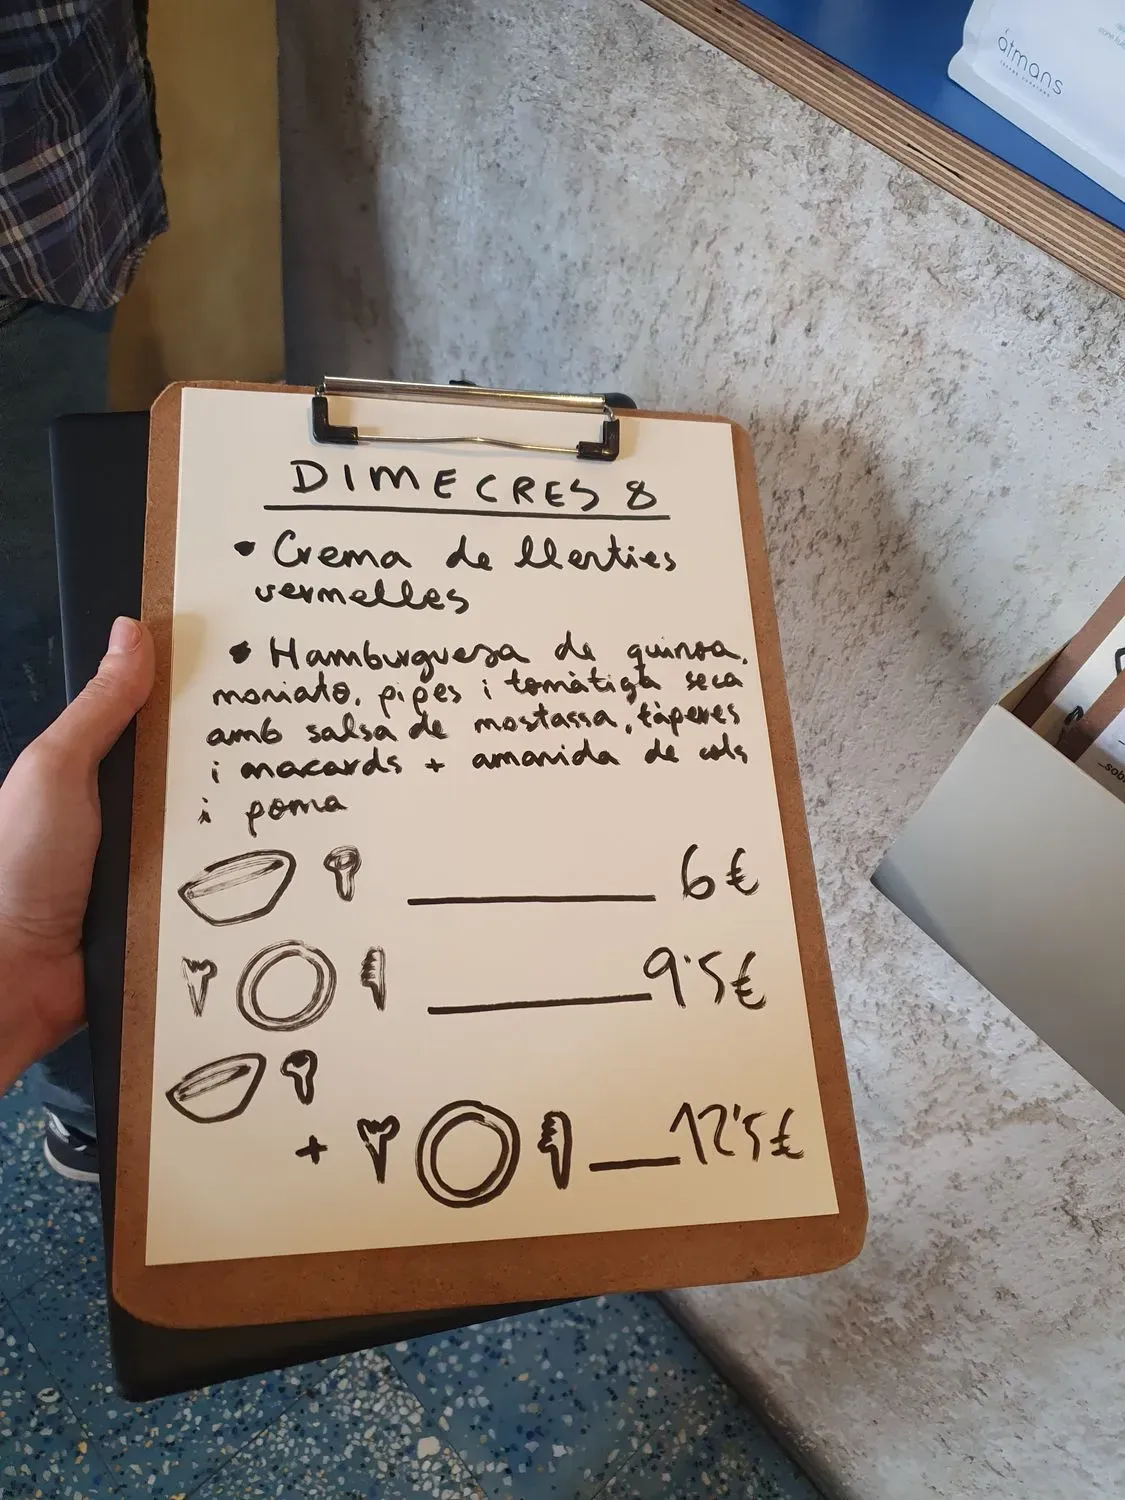 átmans
DIMECRES 8
• Crema de llenties
vermelles
• Hamburguesa de quinoa,
moniato, pipes i tomàtiga seca
amb salsa de mostassa, tàperes
i anacards + amanida de cols
i poma
6€
9'5€
+ 12'5€